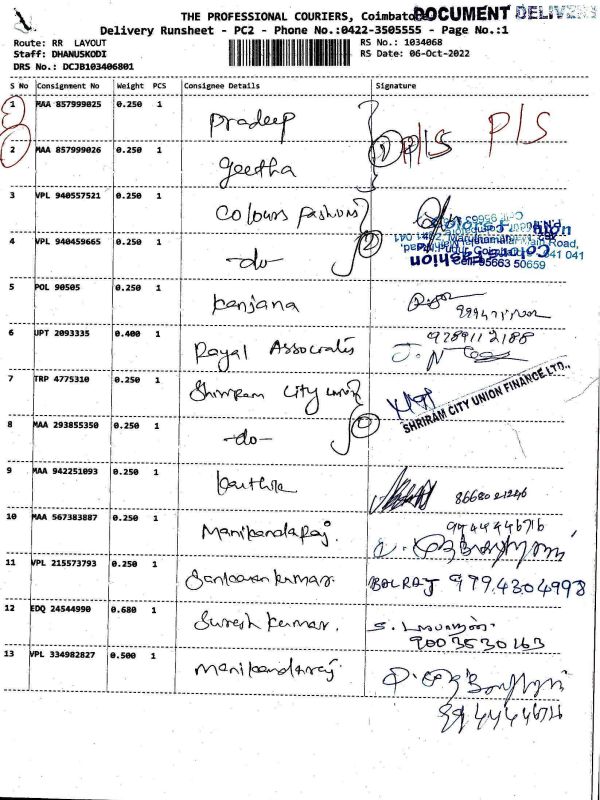 THE PROFESSIONAL COURIERS, Coimbatore
DOCUMENT DELIVERY
Delivery Runsheet - PC2 - Phone No.:0422-3505555 - Page No.:1
Route: RR LAYOUT RS No.: 1034068
Staff: DHANUSKODI RS Date: 06-Oct-2022
DRS No.: DCJB103406801
S No Consignment No Weight PCS Consignee Details Signature
1 MAA 857999025 0.250 1 Pradeep P/S
2 MAA 857999026 0.250 1 geetha P/S
3 VPL 940557521 0.250 1 Colours fashions
4 VPL 940459665 0.250 1 -do-
5 POL 90505 0.250 1 kanjana
6 UPT 2093335 0.400 1 Royal Associates 9789112188
7 TRP 4775310 0.250 1 Shriram City union
SHRIRAM CITY UNION FINANCE LTD.,
8 MAA 293855350 0.250 1 -do-
9 MAA 942251093 0.250 1
10 MAA 567383887 0.250 1 Manikandaraj. 9944446716
11 VPL 215573793 0.250 1 Saravanakumar. BALRAJ 9794304998
12 EDQ 24544990 0.680 1 Suresh kumar. 9003530163
13 VPL 334982827 0.500 1 Manikandaraj.
9944446716